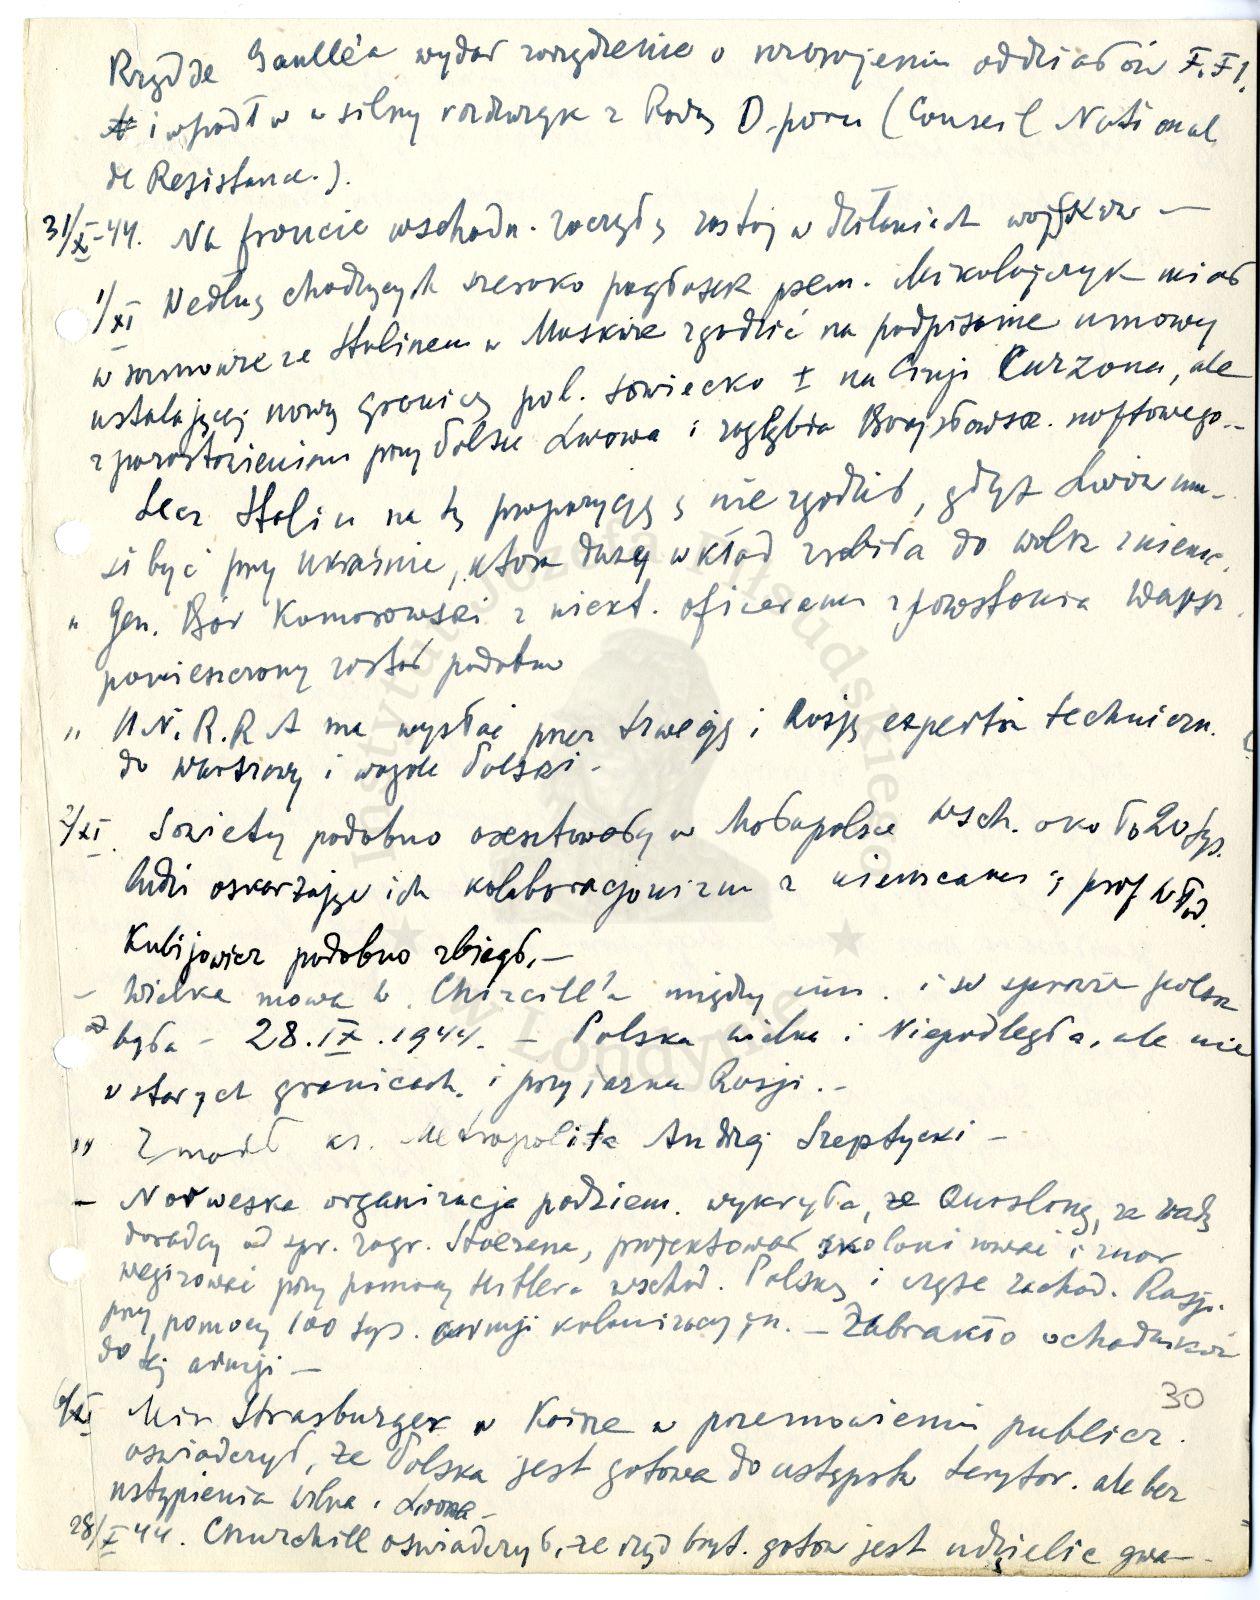 Rząd de Gaulle'a wydał zarządzenie o rozbrojeniu oddziałów F.F.I.
i wpadł w silny rozdźwięk z Radą Oporu (Conseil National
de Resistance.).
31/X-44. Na froncie wschodn. zaczął się zastój w działaniach wojsków —
1/XI Według chodzących szeroko pogłosek prem. Mikołajczyk miał
w rozmowie ze Stalinem w Moskwie zgodzić na podpisanie umowy
ustalającej nową granicę pol. sowiecką ± na linji Curzona, ale
z pozostawieniem przy Polsce Lwowa i zagłębia Borysławsk. naftowego.-
Lecz Stalin na tę propozycję nie zgodził, gdyż Lwów mu-
si być przy Ukrainie, która duży wkład zrobiła do walk z niemc.
" Gen. Bór Komorowski z niekt. oficerami z powstania Warsz.
pomieszczony został podobno
" U.N.R.R.A ma wysłać przez Szwecję i Rosję expertów techniczn.
do Warszawy i wogóle Polski -
2/XI. Sowiety podobno aresztowały w Małopolsce Wsch. około 20 tys.
ludzi oskarżając ich kolaboracjonizm z niemcami; prof Wład.
Kubijowicz podobno zbiegł. —
— Wielka mowa W. Chircill'a między inn. i w sprawie polsk
była - 28.IX.1944. — Polska wielka i Niepodległa, ale nie
w starych granicach, i przyjazna Rosji. -
" Zmarł ks. Metropolita Andrzej Szeptycki —
— Norweska organizacja podziem. wykryła, że Quisling, za radą
doradcy od spr. zagr. Stoerena, projektował skolonizować i znor
wegizować przy pomocy Hitlera wschod. Polskę i część zachod. Rosji
przy pomocy 100 tys. armji kolonizacyjn. — Zabrakło ochotników
do tej armji —
30
6/XI Min Strasburger w Kairze w przemówieniu publicz.
oświadczył, że Polska jest gotowa do ustępstw terytor. ale bez
ustąpienia Wilna i Lwowa —
28/X 44. Churchill oświadczył, że rząd bryt. gotów jest udzielić gwa-
Instytut Józefa Piłsudskiego
w Londynie